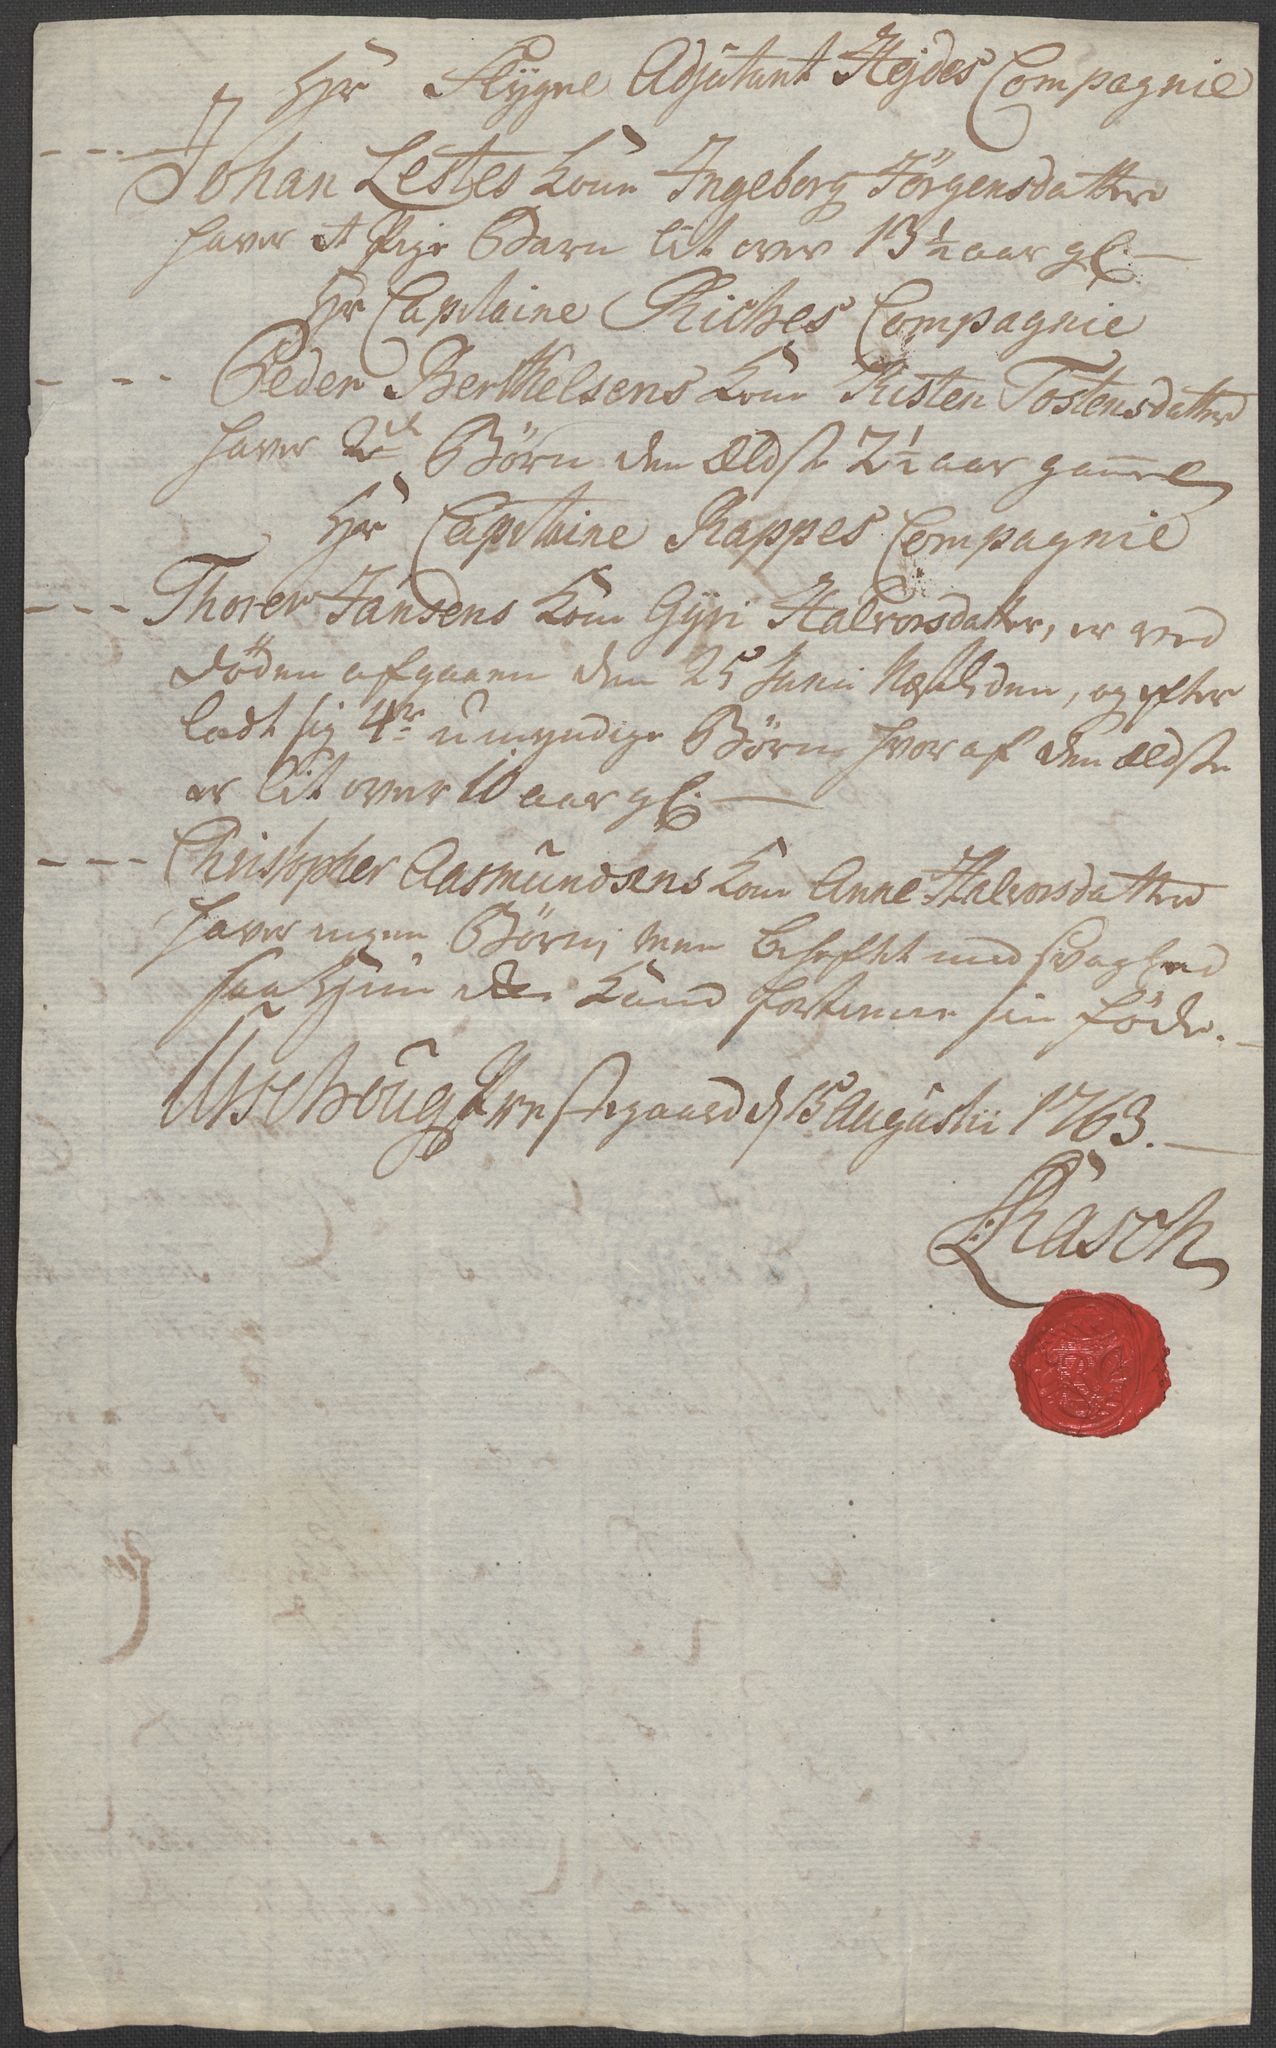 Hr Flygel Adjutant Hejdes Compagnie
Johan Lestes Kone Ingeborg Jörgensdatter
haver et Pige Barn lit over 13 ½ aar gl.
Hr Capitaine Riches Compagnie
Peder Berthelsens Kone Kisten Tostensdatter
haver 2de Börn den Ældste 2½ aar gam̅el
Hr Capitaine Kappes Compagnie
Thorer Jansens Kone Gyri Halvorsdatter, er ved
Döden afgaaen den 25 Junii, og efter
ladt sig 4re umyndige Börn hvoraf den ældste
er lit over 10 aar gl.
Christopher Aasmundsens Kone Anne Halvorsdatter
haver ingen Börn, men beheftet med svaghed
saa Hun Kand fortiene sin föde.
Præstegaard d. 15 Augustii 1763.
Rasch